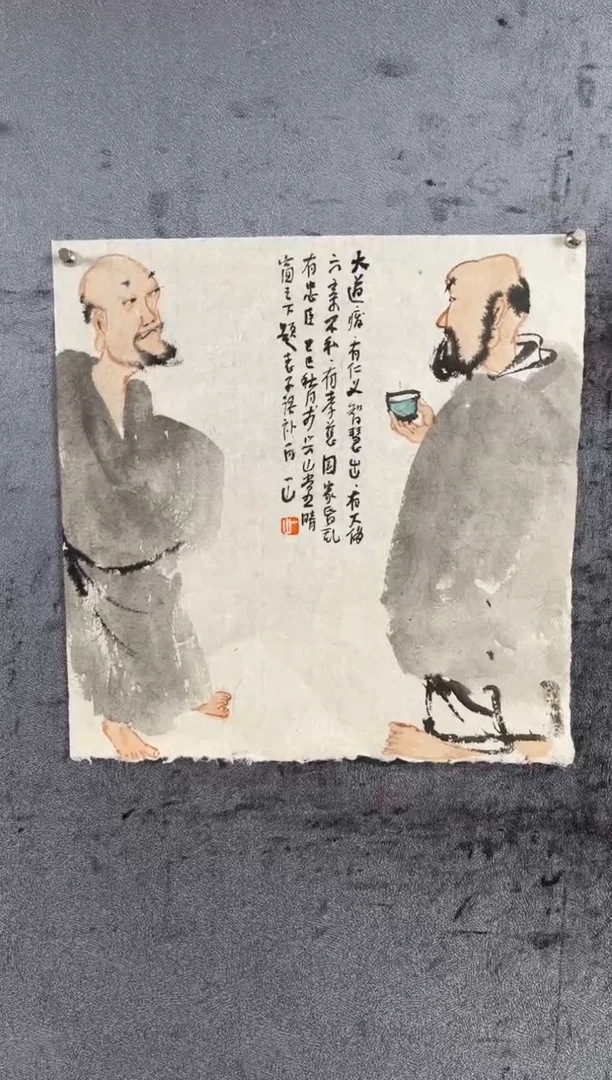 大道废、有仁义智慧出、有大伪
六亲不和、有孝慈国家昏乱
有忠臣乙巳秋月於山堂晴
窗之下题老子语补白一山